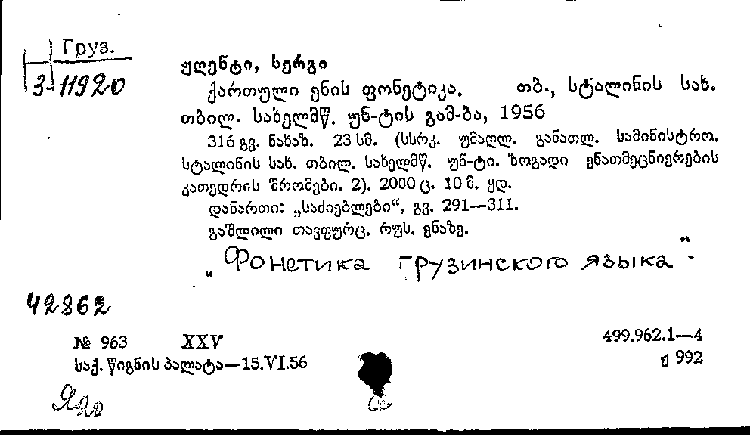 Груз.
3-11920
ჟღენტი, სერგი
ქართული ენის ფონეტიკა. თბ., სტალინის სახ.
თბილ. სახელმწ. უნ-ტის გამ-ბა, 1956
316 გვ. ნახაზ. 23 სმ. (სსრკ. უმაღლ. განათლ. სამინისტრო.
სტალინის სახ. თბილ. სახელმწ. უნ-ტი. ზოგადი ენათმეცნიერების
კათედრის შრომები. 2). 2000 ც. 10 მ. ყდ.
დანართი: „საძიებლები“, გვ. 291—311.
გაშლილი თავფურც. რუს. ენაზე.
„Фонетика грузинского языка“
42862
№ 963 XXV 499.962.1—4
საქ. წიგნის პალატა—15.VI.56 ჟ 992